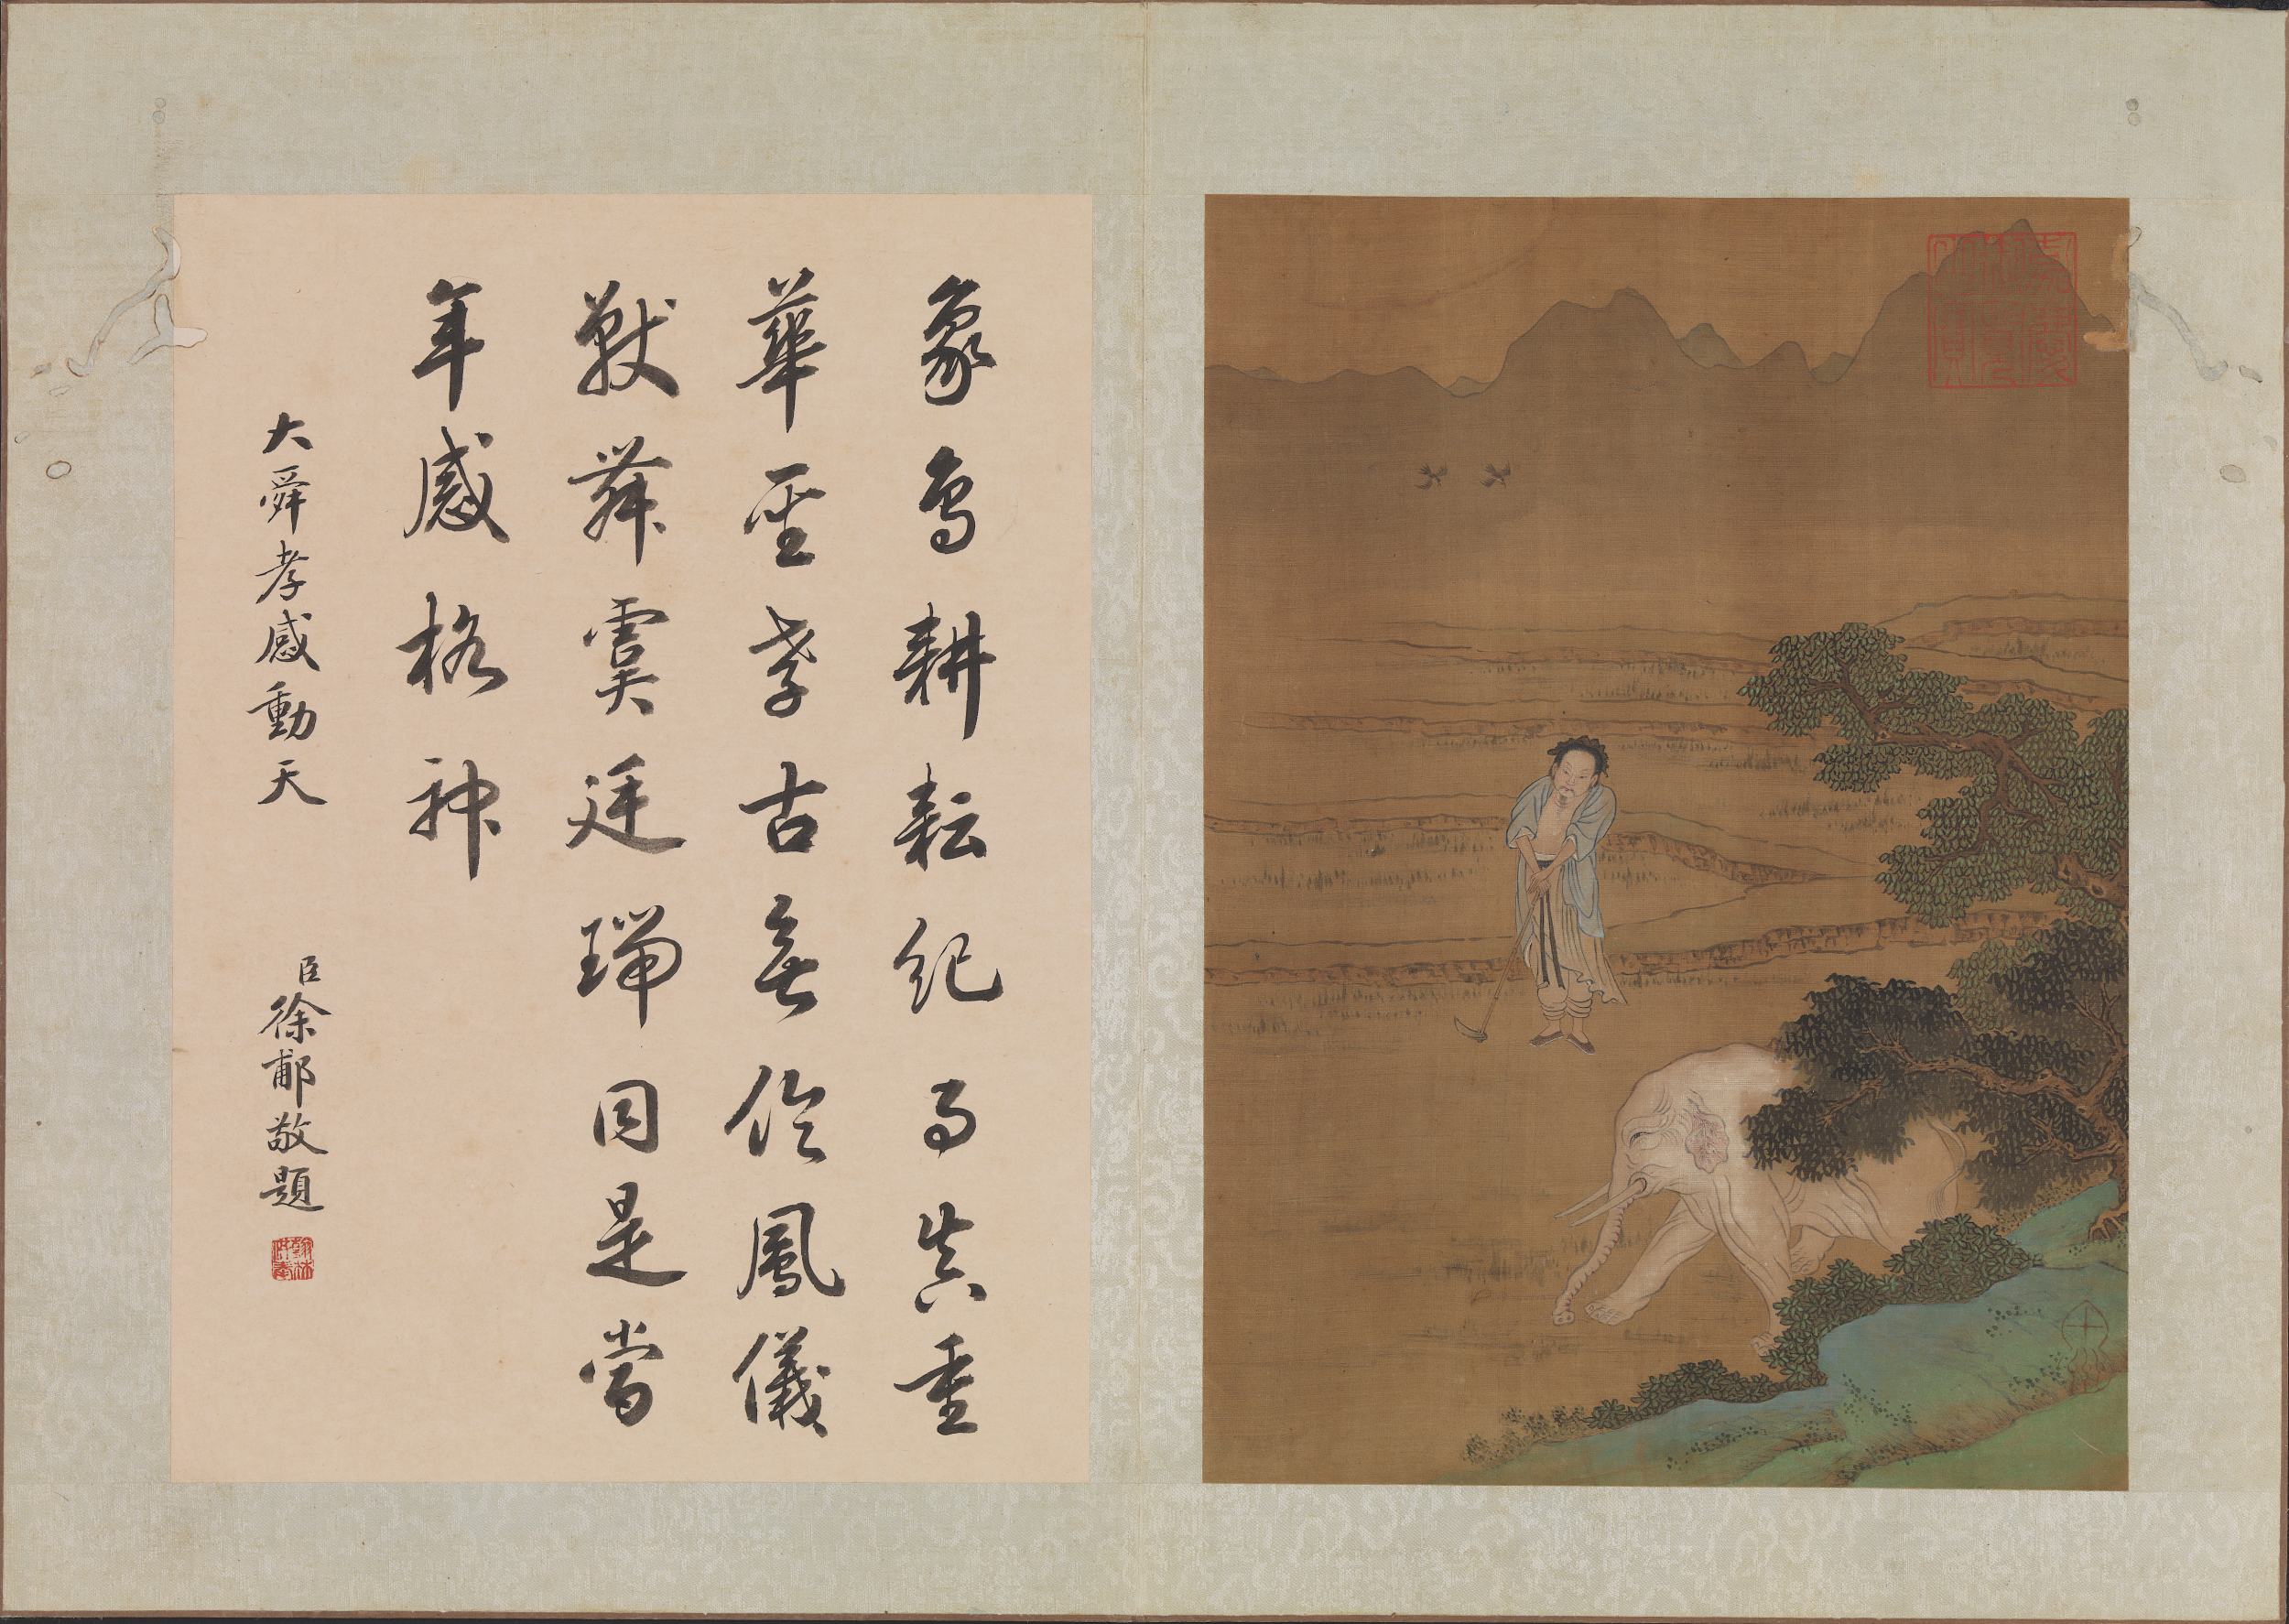 象鳥耕耘紀事真重
華至孝古無倫鳳儀
獸舞虞廷瑞同是當
年感格神
大舜孝感動天
臣徐郙敬題